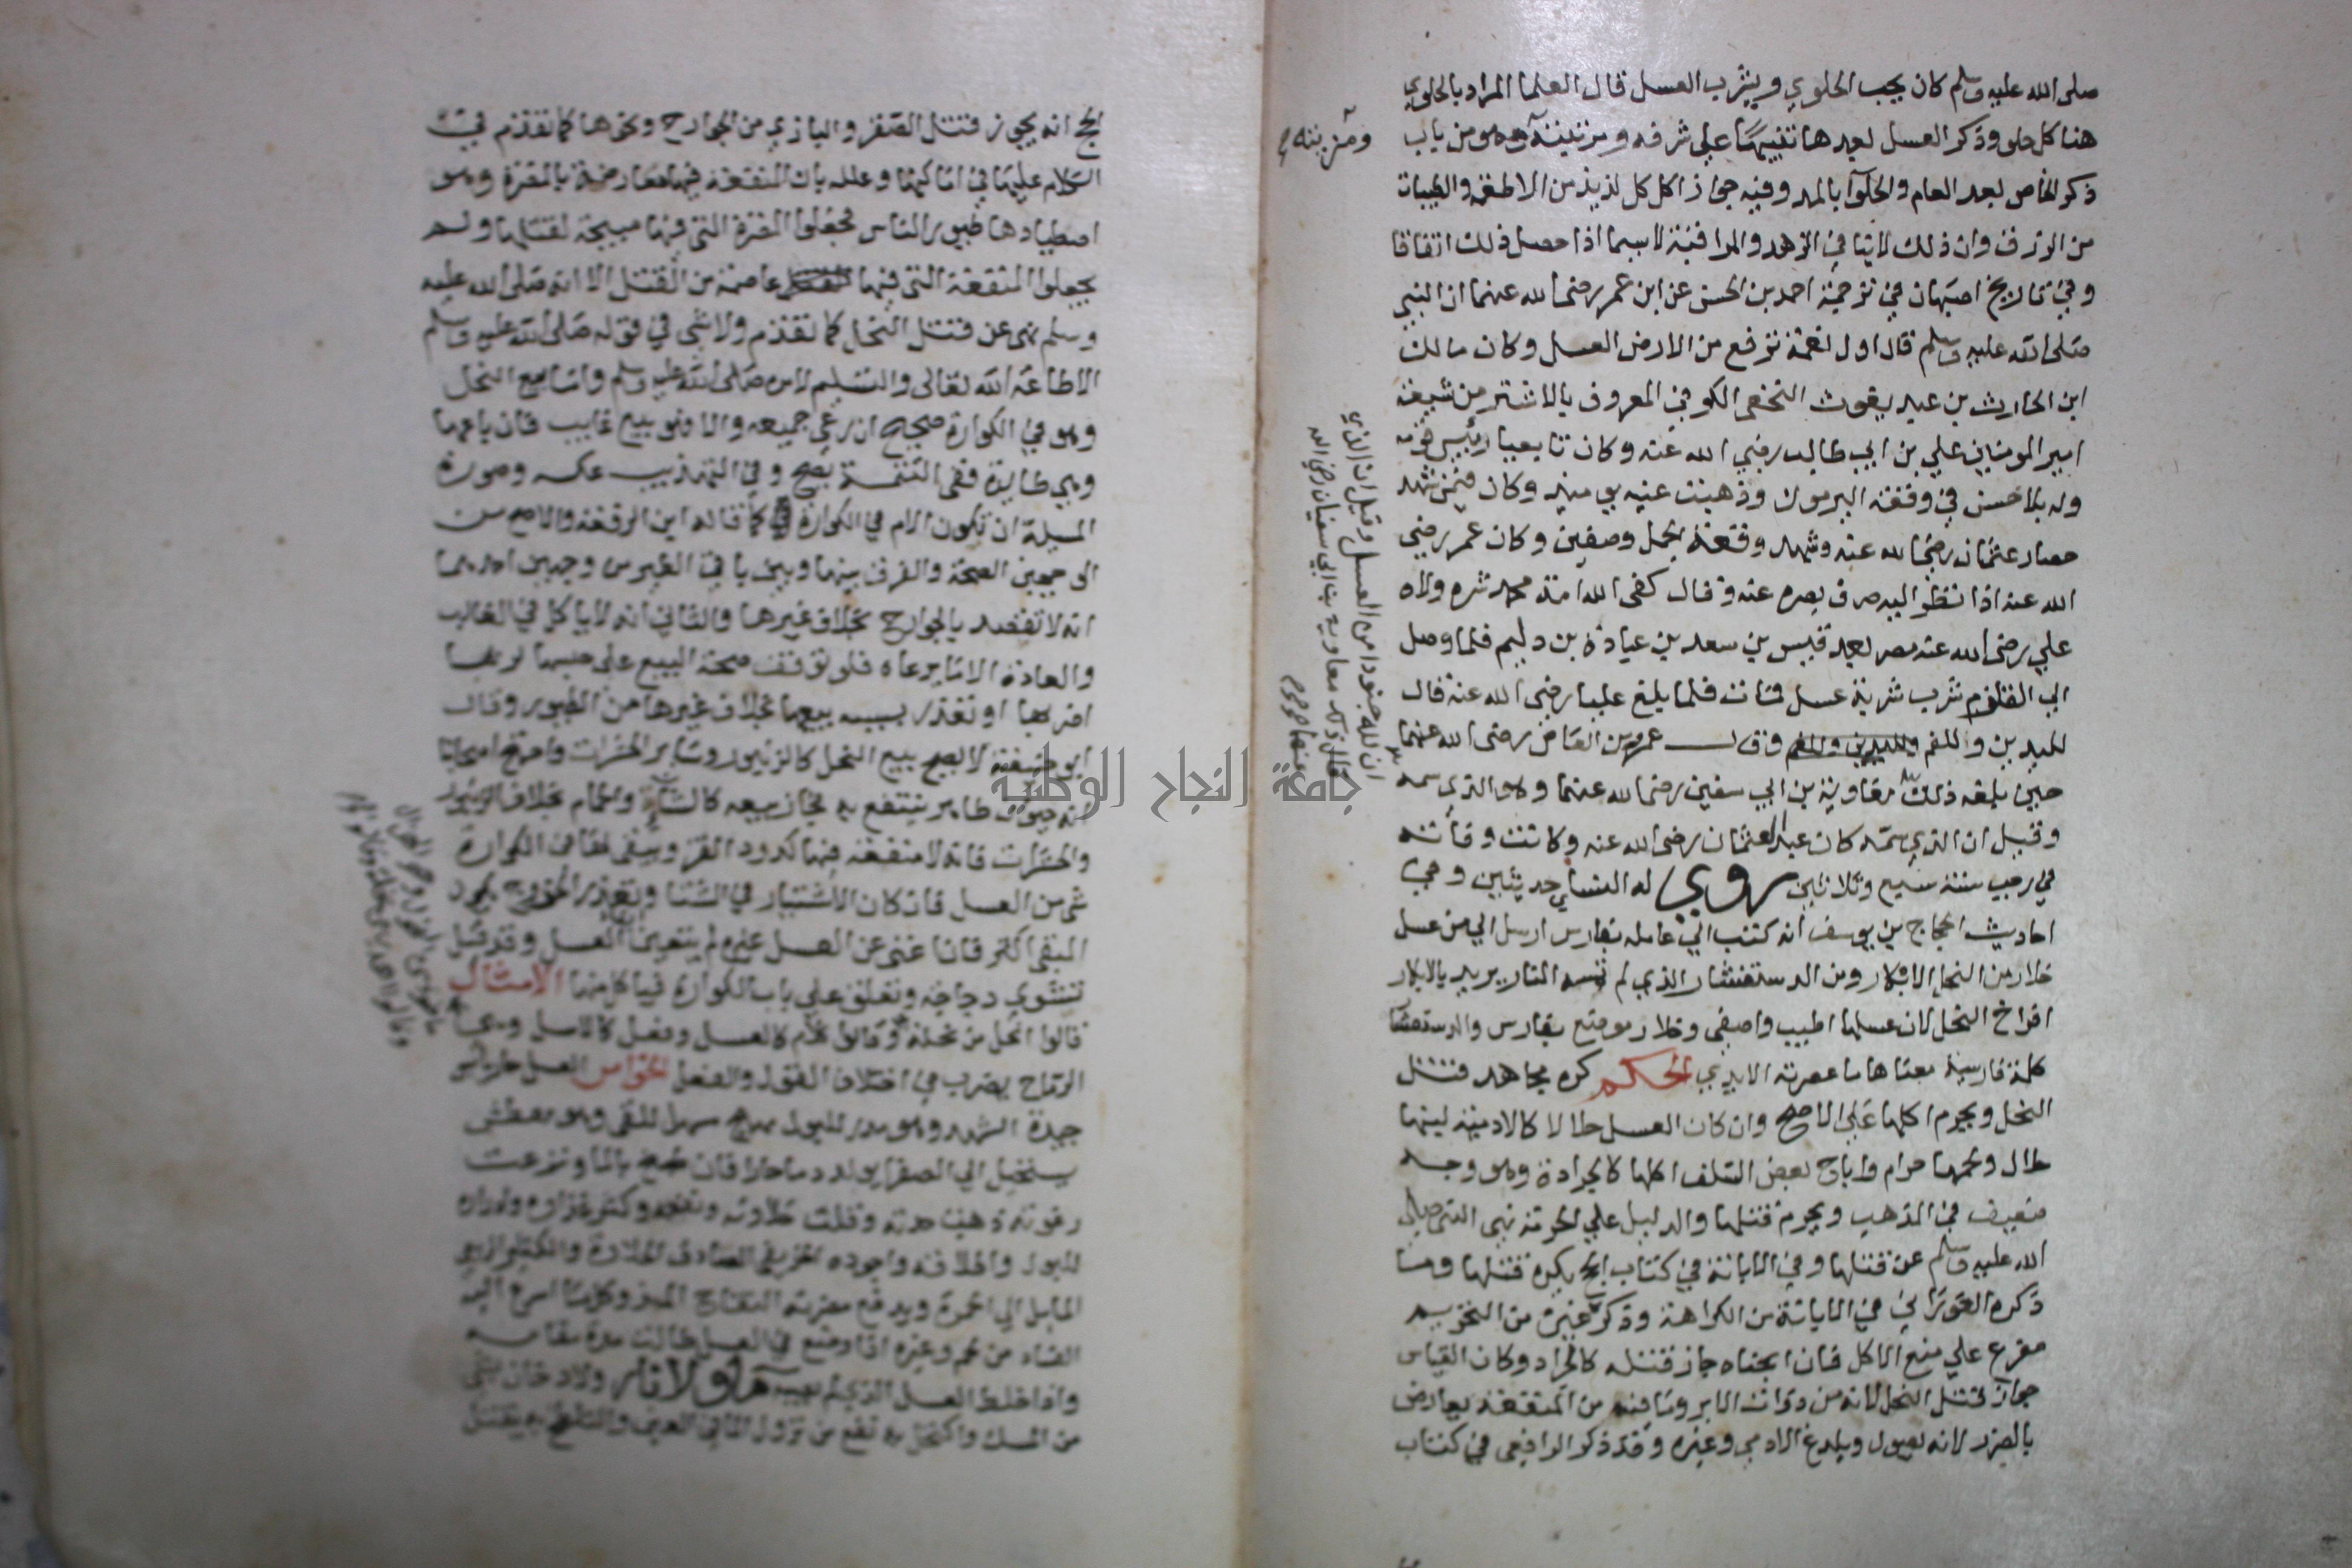 صلى الله عليه وسلم كان يحب الحلوي ويشرب العسل قال العلما المراد بالحلوي
هنا كل حلو وذكر العسل بعدها تنبيها على شرفه ومزيته وهو من باب
ومزيته
ذكر الخاص بعد العام والحلوآ بالمد وفيه جواز اكل كل لذيذ من الاطعمه والطيبات
من الرزق وان ذلك لاينافي الزهد والمراقبة لاسيما اذا حصل ذلك اتفاقا
وفي تاريخ اصبهان في ترجمة احمد بن الحسن عن ابن عمر رضى الله عنهما ان النبي
صلى الله عليه وسلم قال اول نعمة ترفع من الارض العسل وكان مالك
ابن الحارث بن عبد يغوث النخعى الكوفي المعروف بالاشتر من شيعة
امير المومنين علي بن ابي طالب رضي الله عنه وكان تابعيا رئيس قومه
وله بلا حسن في وقعة اليرموك وذهبت عينه يوميذ وكان فيمن شهد
حصار عثمان رضى الله عنه وشهد وقعة الجمل وصفين وكان عمر رضي
الله عنه اذا نظر اليه صرف بصره عنه وقال كفى الله امة محمد شره ولاه
علي رضى الله عنه مصر بعد قيس بن سعد بن عبادة بن دليم فلما وصل
الي القلزم شرب شربة عسل فمات فلما بلغ عليا رضى الله عنه قال
لليدين وللفم وقال عمرو بن العاص رضى الله عنهما
حين بلغه ذلك معاوية بن ابي سفين رضى الله عنهما وهو الذي سمه
ان لله جنودا من العسل وقيل ان الذي
قال ذلك معاوية بن ابي سفيان رضي الله
عنهما
وقيل ان الذي سمه كان عبد العثمان رضى الله عنه وكانت وفاته
في رجب سنة سبع وثلاثين روي له النساي حديثين وفي
احاديث الحجاج بن يوسف انه كتب الي عامله بفارس ارسل الي من عسل
خلار من النحل الابكار ومن الدستفشار الذي لم تمسه النار يريد بالابكار
افراخ النحل لان عسلها اطيب واصفى وخلار موضع بفارس والدستفشار
كلمة فارسية معناها ما عصرته الايدي الحكم كره مجاهد قتل
النحل ويحرم اكلها على الاصح وان كان العسل حلالا كالادمية لبنها
حلال ولحمها حرام واباح بعض السلف اكلها كالجرادة وهو وجه
ضعيف في المذهب ويحرم قتلها والدليل علي الحرمة نهى النبي صلى
الله عليه وسلم عن قتلها وفي الابانة في كتاب الحج يكره قتلها وما
ذكره الفوراني في الابانة من الكراهة وذكره غيره من التحريم
مفرع علي منع الاكل فان ابحناه جاز قتله كالجراد وكان القياس
جواز قتل النحل لانه من ذوات الابر وما فيه من المنفعة يعارض
بالضرر لانه يصول ويلدغ الادمي وغيره وقد ذكر الرافعى في كتاب
الحج انه يجوز قتل الصقر والبازي من الجوارح ونحوها كما تقدم في
الكلام عليها في اماكنها وعلله بان المنفعة فيها معارضة بالمضرة وهو
اصطيادها طيور الناس فجعلوا المضرة التي فيها مبيحة لقتلها ولم
يجعلوا المنفعة التي فيها عاصمة من القتل الا انه صلى الله عليه
وسلم نهى عن قتل النحل كما تقدم ولاشي في قوله صلى الله عليه وسلم
الا طاعة الله تعالى والتسليم لامره صلى الله عليه وسلم واما بيع النحل
وهو في الكوارة صحيح ان رئي جميعه والا فهو بيع غايب فان باعها
وهي طايرة ففى التتمة يصح وفي التهذيب عكسه وصورة
المسيلة ان تكون الام في الكوارة كما قاله ابن الرفعة والاصح من
الوجهين الصحة والفرق بينها وبين باقي الطيور من وجهين احدهما
انه لا تقصد بالجوارح بخلاف غيرها والثاني انه لا ياكل في الغالب
والعادة الا مما يرعاه فلو توقفت صحة البيع على حبسها لربما
اضر بها او تعذر بسببه بيعها بخلاف غيرها من الطيور وقال
ابو حنيفة لايصح بيع النحل كالزنبور وسائر الحشرات واحتج اصحابنا
انه حيوان طاهر ينتفع به فجاز بيعه كالشاة والحمام بخلاف الزنبور
والحشرات فانه لا منفعة فيها كدود القز ويبقى لها في الكوارة
شى من العسل فان كان الاشتيار في الشتا وتعذر الخروج يكون
المبقى اكثر فان اغنى عن العسل غيره لم يتعين العسل وقد قيل
تشوي دجاجة وتعلق على باب الكوارة فياكل منها الامثال
قالوا انحل من نحلة وقالوا كلام كالعسل وفعل كالاسل وهي
الرماح يضرب في اختلاف القول والفعل الخواص العسل حار يابس
جيدة الشهد وهو مدر للبول مسهل للقى وهو معطش
يستحيل الي الصفرا يولد دما حارا فان طبخ بالما ونزعت
رغوته ذهبت حدته وقلت حلاوته ونفعه وكثر غذاوه وادراره
للبول واطلاقه واجوده الخريفي الصادق الحلاوة والكثير الربيعي
المايل الي الحمرة ويدفع مضرته التفاح المز وكلما اسرع اليه
الفساد من لحم وغيره اذا وضع في العسل طالت مدة مقامه
واذا خلط العسل الذي لم يصبه ما ولا نار ولا دخان بشى
من المسك واكتحل به نفع من نزول الما في العين والتلطخ به يقتل
جامعة النجاح الوطنية